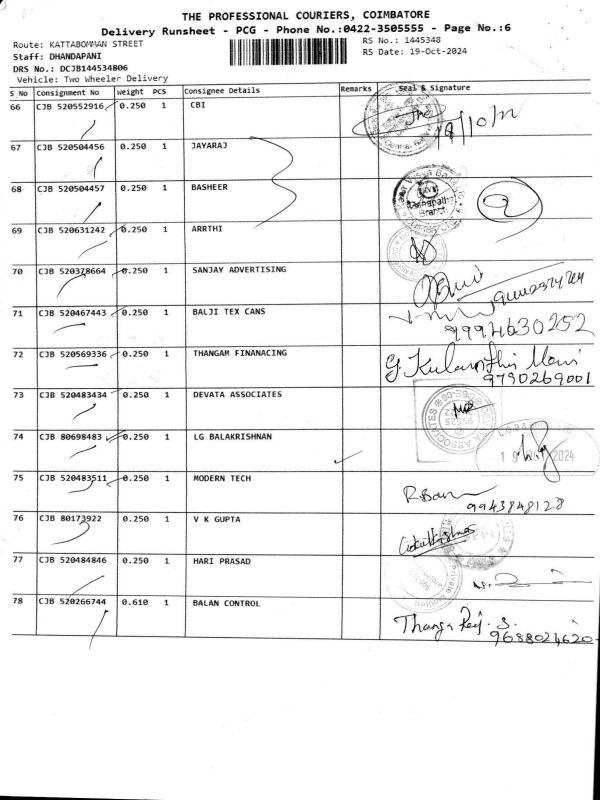 THE PROFESSIONAL COURIERS, COIMBATORE
Delivery Runsheet - PCG - Phone No.:0422-3505555 - Page No.:6
Route: KATTABOMMAN STREET RS No.: 1445348
Staff: DHANDAPANI RS Date: 19-Oct-2024
DRS No.: DCJB144534806
Vehicle: Two Wheeler Delivery
S No Consignment No Weight PCS Consignee Details Remarks Seal & Signature
66 CJB 520552916 0.250 1 CBI
67 CJB 520504456 0.250 1 JAYARAJ
68 CJB 520504457 0.250 1 BASHEER
Branch
69 CJB 520631242 0.250 1 ARRTHI
70 CJB 520378664 0.250 1 SANJAY ADVERTISING
71 CJB 520467443 0.250 1 BALJI TEX CANS
9994630252
72 CJB 520569336 0.250 1 THANGAM FINANACING
9790269001
73 CJB 520483434 0.250 1 DEVATA ASSOCIATES
74 CJB 80698483 0.250 1 LG BALAKRISHNAN
2024
75 CJB 520483511 0.250 1 MODERN TECH
9943848128
76 CJB 80173922 0.250 1 V K GUPTA
77 CJB 520484846 0.250 1 HARI PRASAD
78 CJB 520266744 0.610 1 BALAN CONTROL
Thanga Raj. S.
9688024620